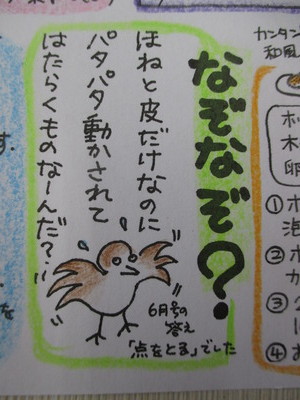 カンタン
和風
卵
①
②
か
③
④
なぞなぞ?
ほねと皮だけなのに
パタパタ動かされて
はたらくものなーんだ?
6月号の
答え
「点をとる」でした
す.
を